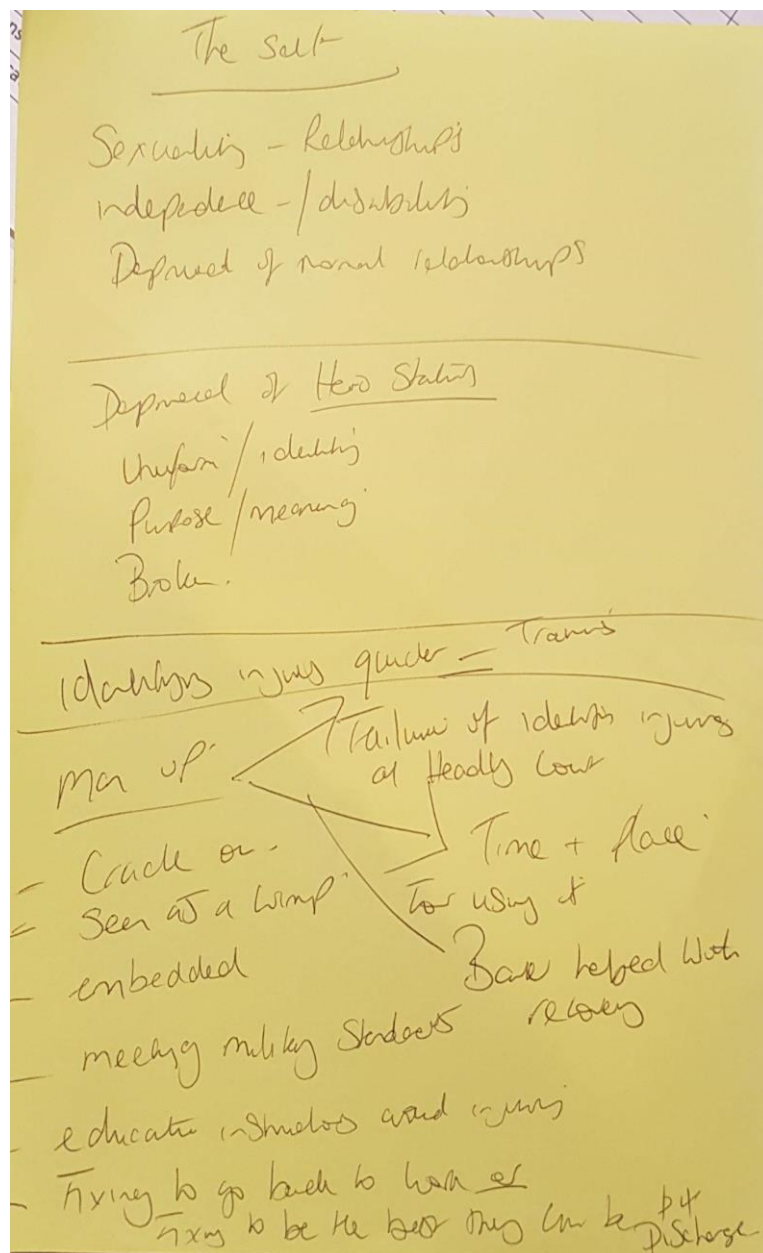 The Self
Sexuality - Relationships
independence - / disability
Deprived of normal relationships
Deprived of Hero Status
Uniform / identity
Purpose / meaning
Broken.
Identifying injury quicker =
Man up
Failure of identify injuries
at Headly Court
- Crack on -
Time + place
- Seen as a wimp
for using it
- embedded
helped with
recovery
- meeting military standards
- educate instructors around injury
- Fixing to go back to work or
Fixing to be the best they can be p4
Discharge